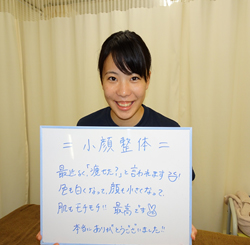 = 小顔整体 =
最近よく、「痩せた?」と言われます
色も白くなって、顔も小さくなって
肌もモチモチ!! 最高です
本当にありがとうございました!!